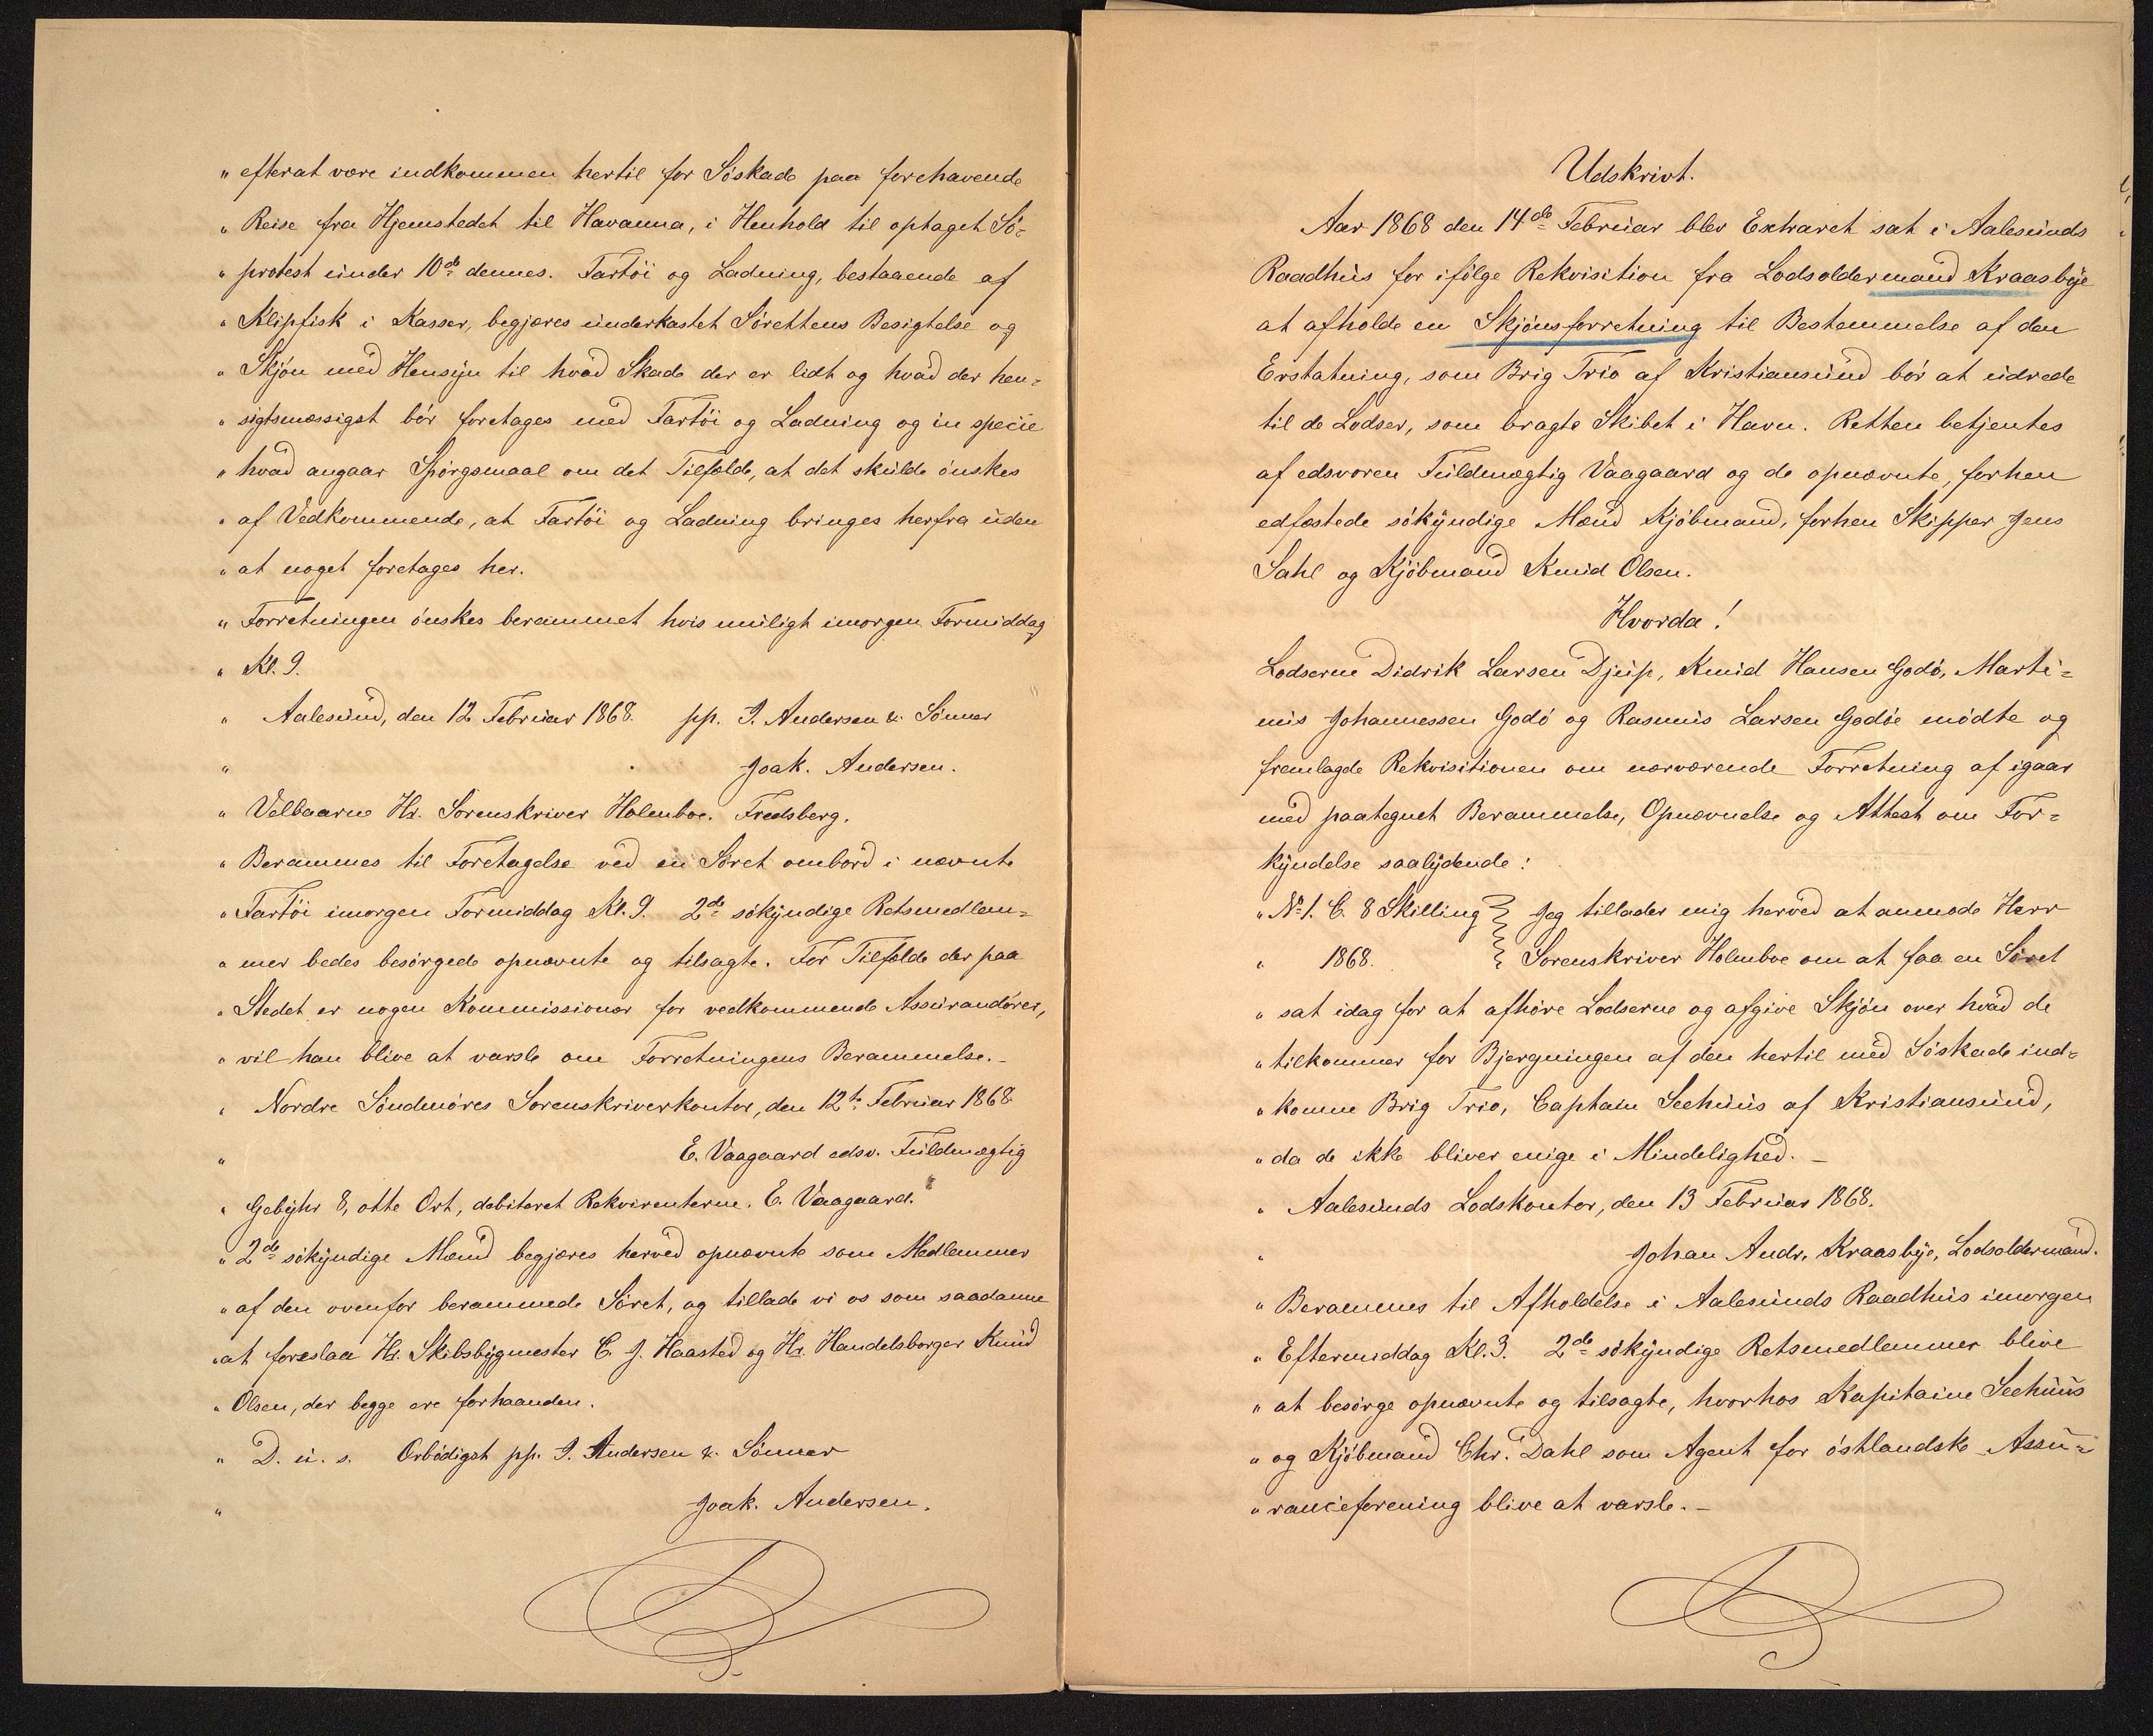 " efterat være indkommen hertil for Söskade paa forehavende
" Reise fra Hjemstedet til Havanna, i Henhold til optaget Sö-
" protest under 10de dennes. Fartöi og Ladning, bestaaende af
" Klipfisk i Kasser, begjæres underkastet Sörettens Besigtelse og
" Skjön med Hensyn til hvad Skade der er lidt og hvad der hen-
" sigtsmæssigst bör foretages med Fartöi og Ladning og in specie
" hvad angaar Spörgsmaal om det Tilfælde, at det skulde önskes
" af Vedkommende, at Fartöi og Ladning bringes herfra uden
" at noget foretages her.
" Forretningen önskes berammet hvis muligt imorgen Formiddag
" Kl. 9.
" Aalesund, den 12 Februar 1868. pp. J. Andersen & Sönner
" Joak. Andersen.
" Velbaarne Hr. Sorenskriver Holmboe. Fredsberg.
" Berammes til Foretagelse ved en Söret ombord i nævnte
" Fartöi imorgen Formiddag Kl. 9. 2de sökyndige Retsmedlem-
" mer bedes besörgede opnævnte og tilsagte. For Tilfælde der paa
" Stedet er nogen Kommissionær for vedkommende Assurandörer,
" vil han blive at varsle om Forretningens Berammelse. -
" Nordre Söndmöres Sorenskriverkontor, den 12te Februar 1868.
" E. Vaagaard edsv. Fuldmægtig
" Gebyhr 8, otte Ort, debiteret Rekvirenterne. E. Vaagaard.
" 2de sökyndige Mænd begjæres herved opnævnte som Medlemmer
" af den ovenfor berammede Söret, og tillade vi os som saadanne
" at foreslaa Hr. Skibsbygmester C. J. Haasted og Hr. Handelsborger Knud
" Olsen, der begge ere forhaanden.
" D. u. s. Orbödigst pp. J. Andersen & Sönner
" Joak. Andersen.
Udskrivt.
Aar 1868 den 14de Februar blev Extraret sat i Aalesunds
Raadhus for ifölge Rekvisition fra Lodsoldermand Kraasbye
at afholde en Skjönsforretning til Bestemmelse af den
Erstatning, som Brig Trio af Kristiansund bör at udrede
til de Lodser, som bragte Skibet i Havn. Retten betjentes
af edsvoren Fuldmægtig Vaagaard og de opnævnte, forhen
edfæstede sökyndige Mænd Kjöbmand, forhen Skipper Jens
Sahl og Kjöbmand Knud Olsen.
Hvorda!
Lodserne Didrik Larsen Djup, Knud Hansen Godö, Marti-
nus Johannessen Godö og Rasmus Larsen Godöe mödte og
fremlagde Rekvisitionen om nærværende Forretning af igaar
med paategnet Berammelse, Opnævnelse og Attest om For-
kyndelse saalydende:
" No 1. C. 8 Skilling Jeg tillader mig herved at anmode Herr
" 1868. Sorenskriver Holmboe om at faa en Söret
" sat idag for at afhöre Lodserne og afgive Skjön over hvad de
" tilkommer for Bjergningen af den hertil med Söskade ind-
" komne Brig Trio, Captain Seehuus af Kristiansund,
" da de ikke bliver enige i Mindelighed. -
" Aalesunds Lodskontor, den 13 Februar 1868.
" Johan Andr. Kraasbye, Lodsoldermand.
" Berammes til Afholdelse i Aalesunds Raadhus imorgen
" Eftermiddag Kl. 3. 2de sökyndige Retsmedlemmer blive
" at besörge opnævnte og tilsagte, hvorhos Kapitaine Seehuus
" og Kjöbmand Chr. Dahl som Agent for östlandske Assu-
" ranceforening blive at varsle. -